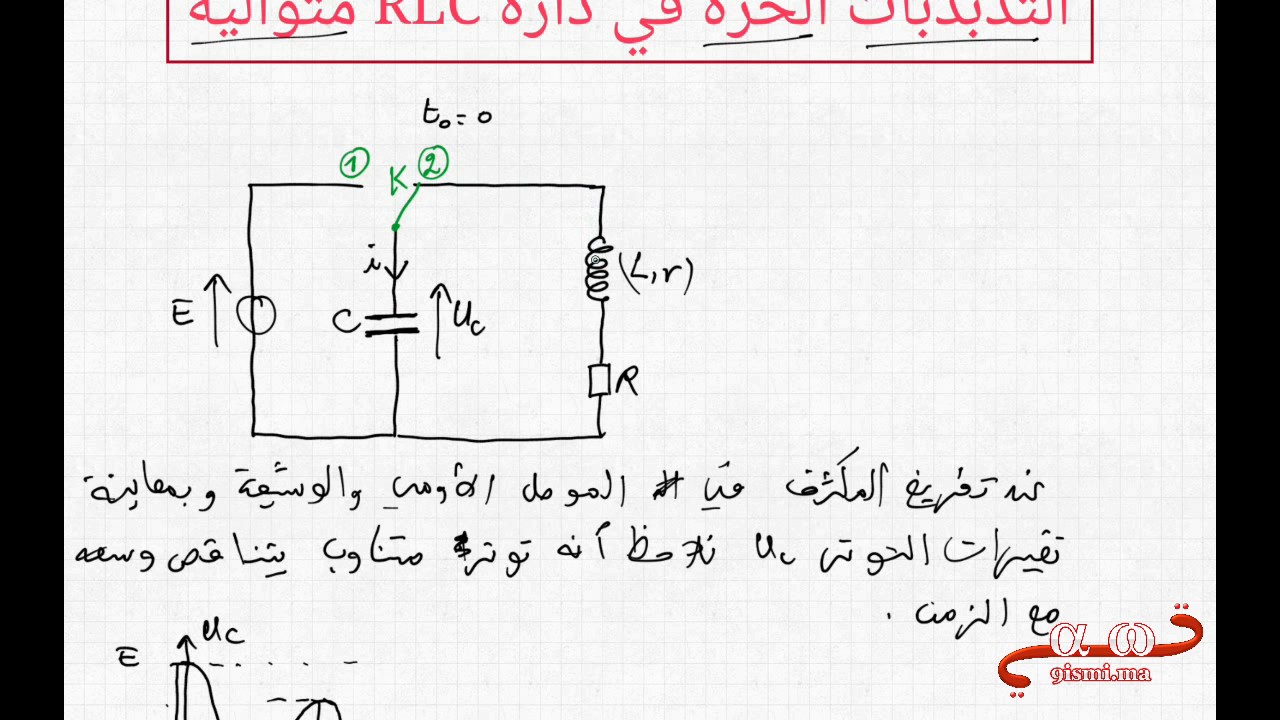 التذبذبات الحرة في دارة RLC متوالية
t₀ = 0
① K ②
i
E
C
u_c
(L,r)
R
عند تفريغ المكثف في الموصل الأومي والوشيعة وبمعاينة
تغيرات التوتر u_c نلاحظ أنه توتر متناوب يتناقص وسعه
مع الزمن .
u_c
E
ق α ω
9ismi.ma